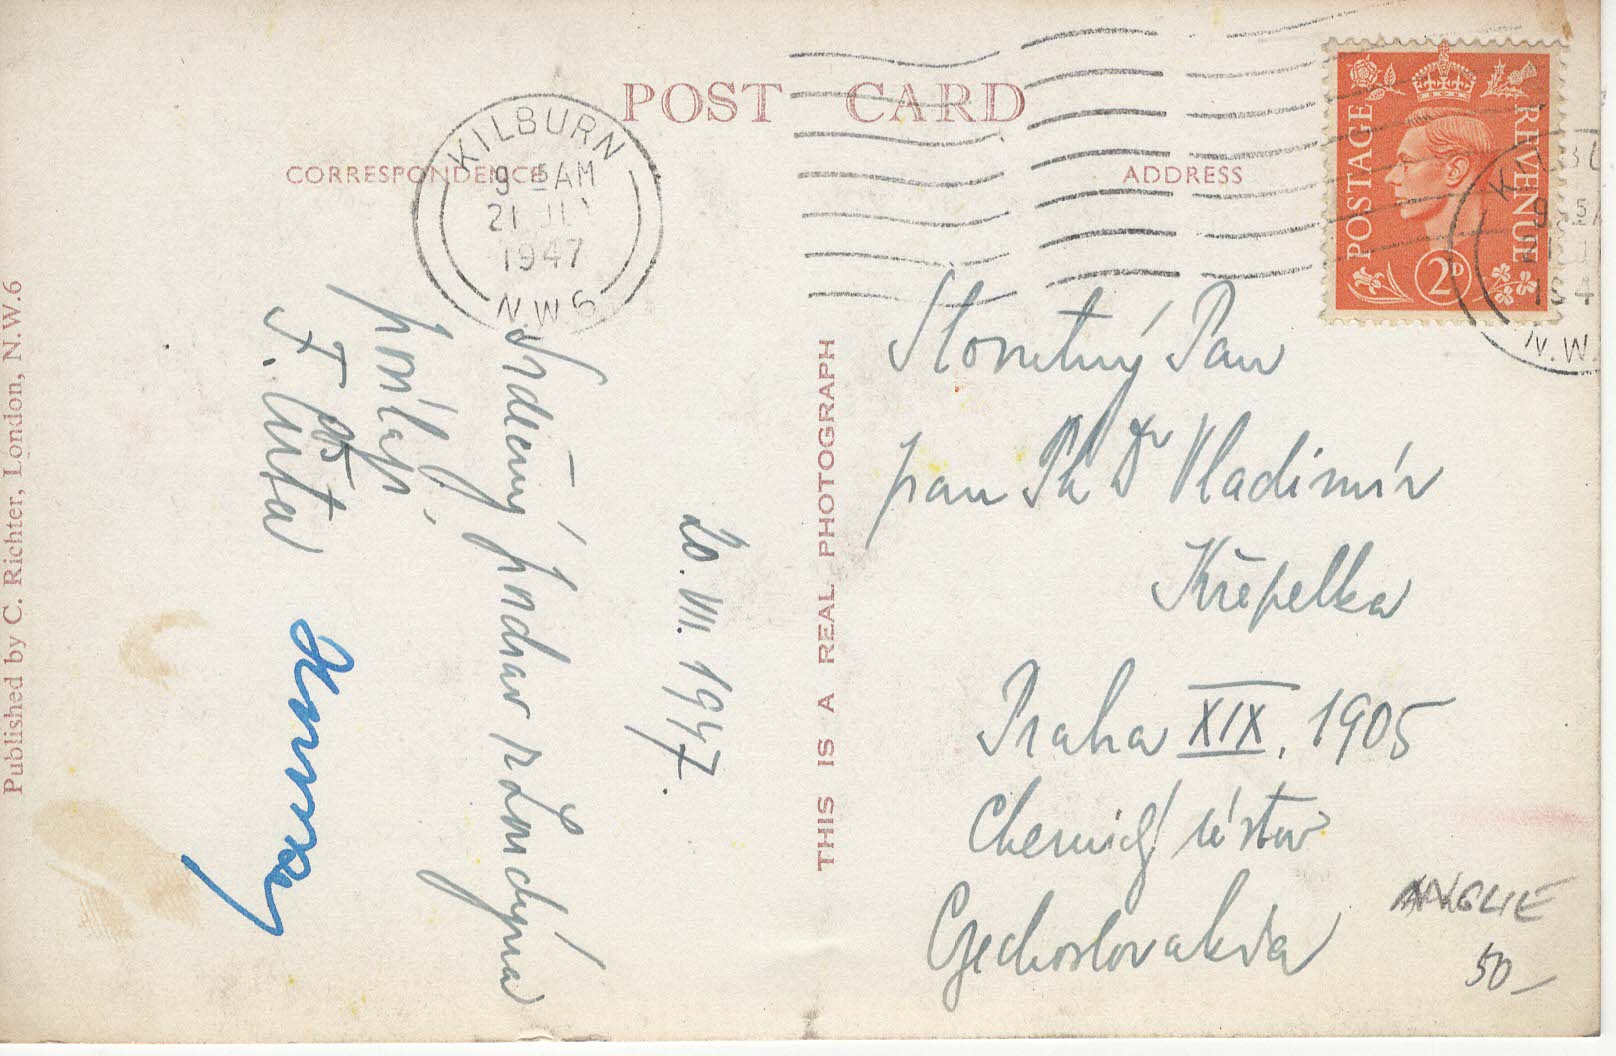 POST CARD
CORRESPONDENCE
ADDRESS
KILBURN
9 5 AM
21 JLY
1947
N.W.6
POSTAGE
REVENUE
2D
9 5
N.W.
20. VII. 1947.
Srdečný pozdrav z Londýna
posílají
F.
Slovutný Pan
pan PhDr Vladimír
Křepelka
Praha XIX, 1905
Chemický ústav
Czechoslovakia
ANGLIE
50,-
THIS IS A REAL PHOTOGRAPH
Published by C. Richter, London, N.W.6